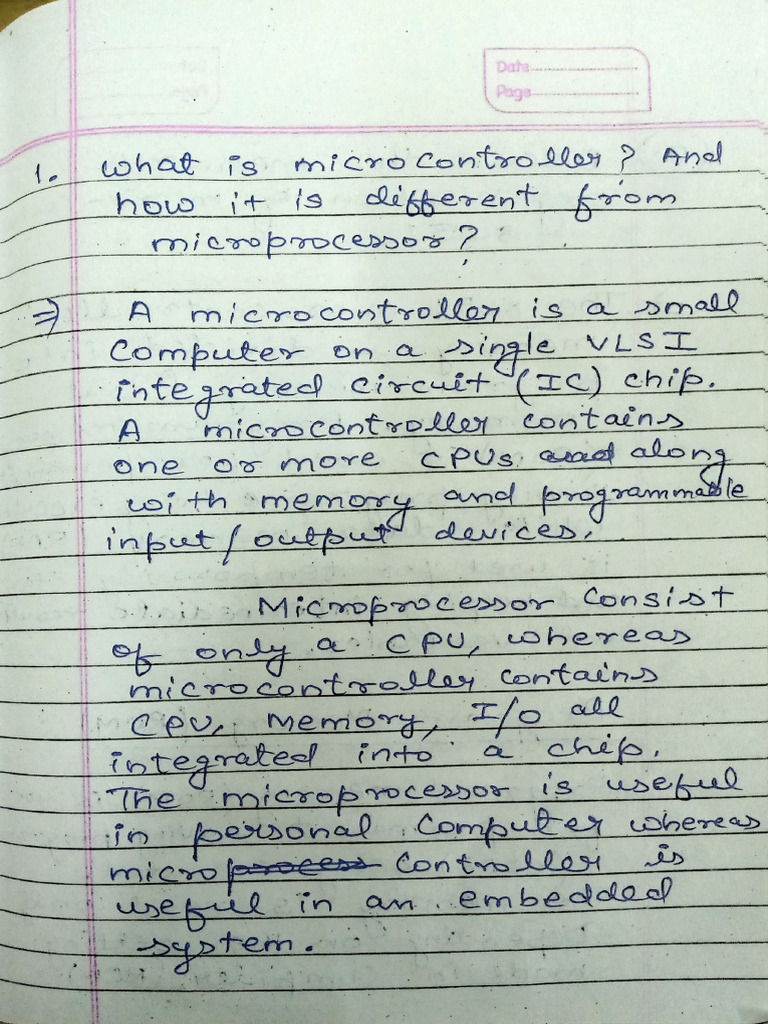 Date
Page
1. What is microcontroller? And
how it is different from
microprocessor?
⇒ A microcontroller is a small
computer on a single VLSI
integrated circuit (IC) chip.
A microcontroller contains
one or more CPUs along
with memory and programmable
input/output devices.
Microprocessor consist
of only a CPU, whereas
microcontroller contains
CPU, Memory, I/O all
integrated into a chip.
The microprocessor is useful
in personal computer whereas
micro process controller is
useful in an embedded
system.